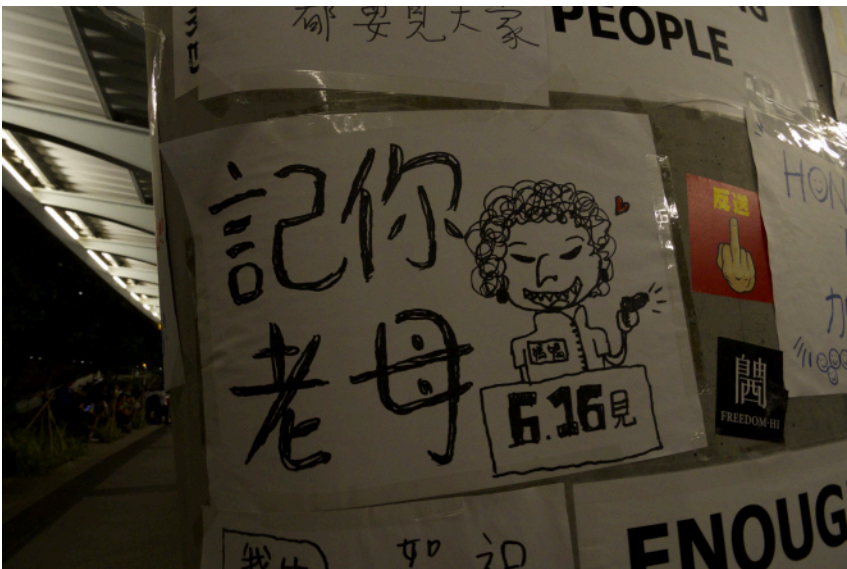 都要見大家
PEOPLE
記你
老母
6.16見
反送
HON
加
FREEDOM-HI
如
ENOUG